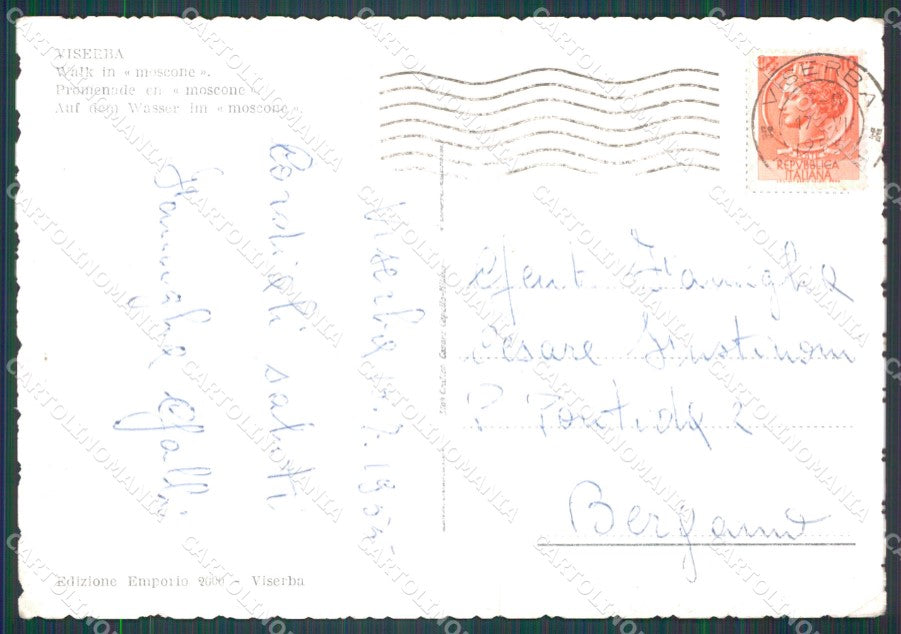 VISERBA
Walk in « moscone ».
Promenade en « moscone »
Auf dem Wasser im « moscone ».
VISERBA
REPVBBLICA
ITALIANA
Viserba
Cordiali saluti
Famiglia Galli
Gent Famiglia
Cesare Giustinoni
P. Pontida 2
Bergamo
Edizione Emporio 2000 - Viserba
CARTOLINOMANIA